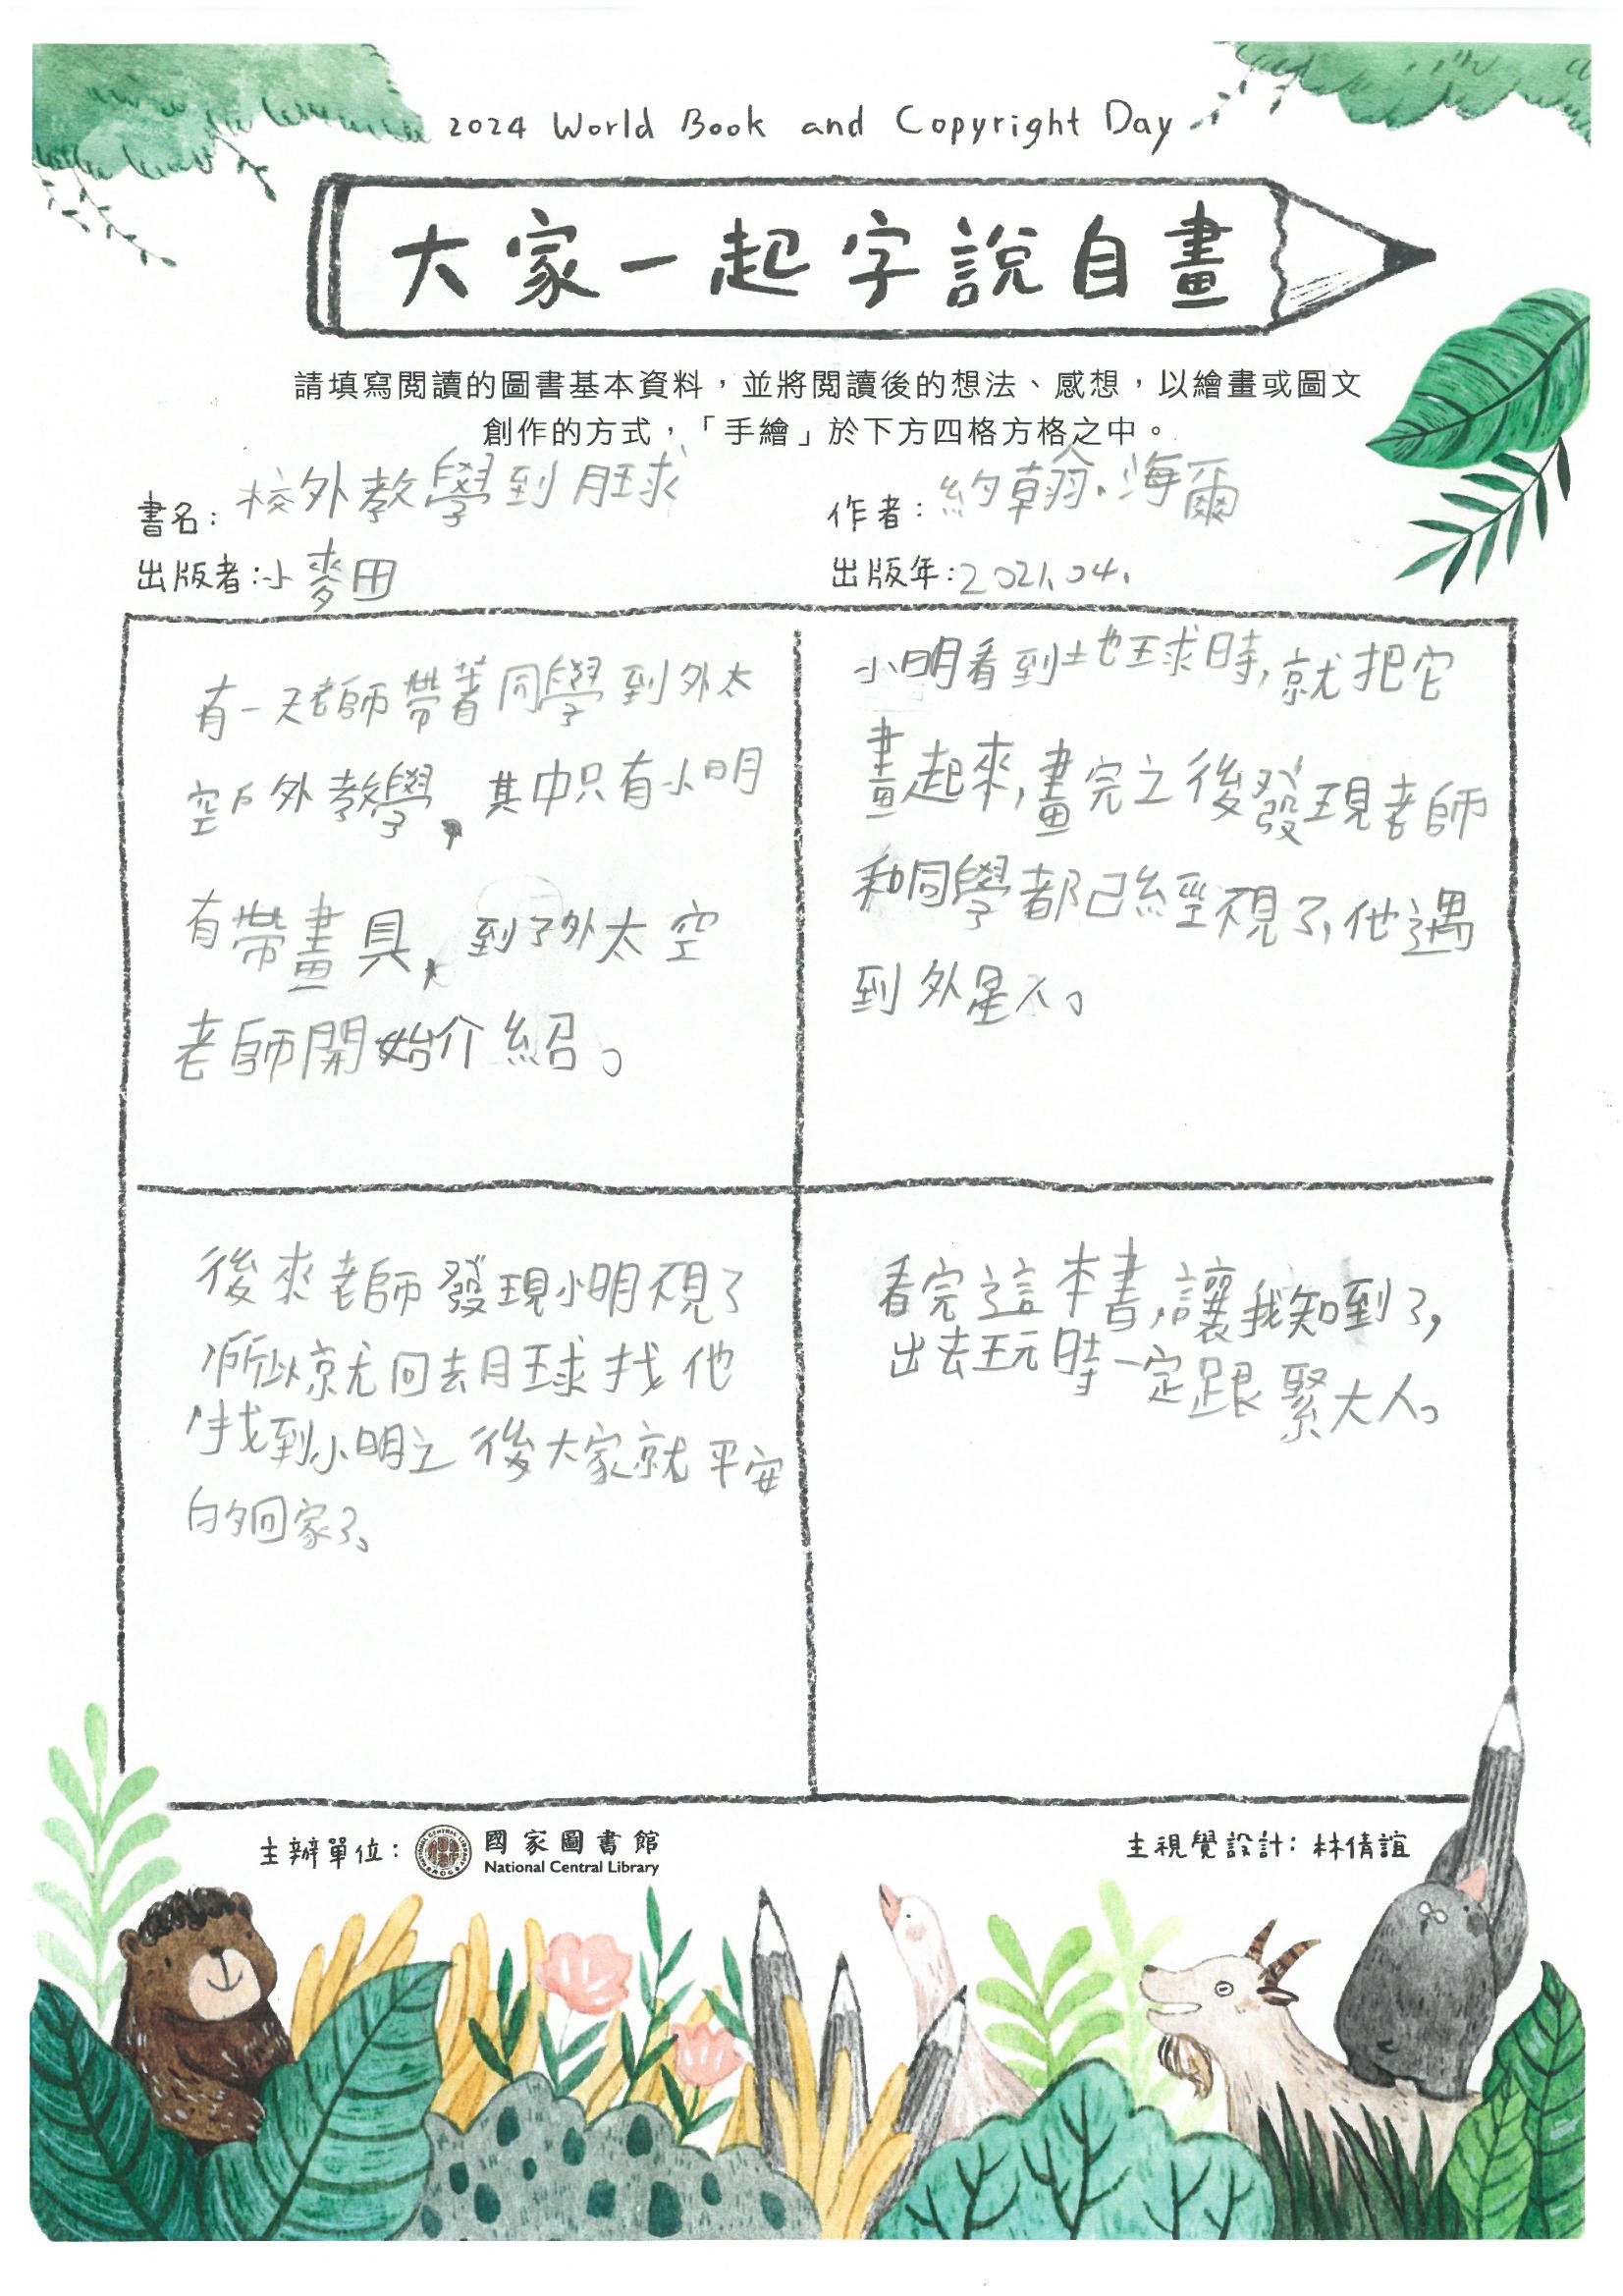 2024 World Book and Copyright Day
大家一起字說自畫
請填寫閱讀的圖書基本資料，並將閱讀後的想法、感想，以繪畫或圖文
創作的方式，「手繪」於下方四格方格之中。
書名：校外教學到月球
作者：約翰．海爾
出版者：小麥田
出版年：2021.04.
有一天老師帶著同學到外太
空戶外教學，其中只有小明
有帶畫具，到了外太空
老師開始介紹。
小明看到地球時，就把它
畫起來，畫完之後發現老師
和同學都已經不見了，他遇
到外星人。
後來老師發現小明不見了
所以就回去月球找他
找到小明之後大家就平安
的回家了。
看完這本書，讓我知到了，
出去玩時一定跟緊大人。
主辦單位：國家圖書館
National Central Library
主視覺設計：林倩誼